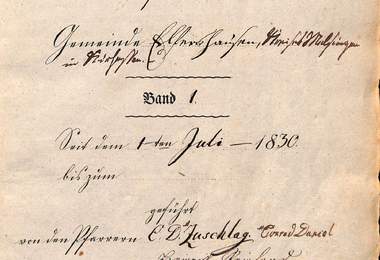 Gemeinde Elfershausen, Kreises Melsungen
in Kurhessen.
Band 1.
Seit dem 1ten Juli – 1830.
bis zum
geführt
von den Pfarrern C. D. Zuschlag. Conrad Daniel